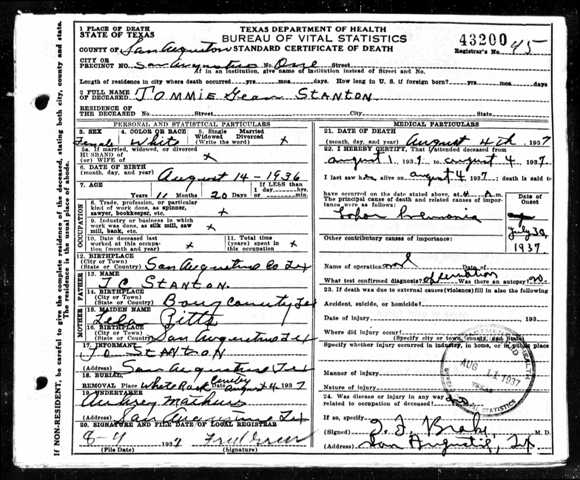 TEXAS DEPARTMENT OF HEALTH
BUREAU OF VITAL STATISTICS
STANDARD CERTIFICATE OF DEATH
1 PLACE OF DEATH
STATE OF TEXAS
COUNTY OF San Augustine
43200 45
Registrar's No.
CITY OR PRECINCT NO. San Augustine One Street
If in an institution, give name of institution instead of Street and No.
Length of residence in city where death occurred yrs. mos. days. How long in U. S. if foreign born? yrs. mos. days
2 FULL NAME OF DECEASED TOMMIE Jean STANTON
RESIDENCE OF THE DECEASED No. Street City State
PERSONAL AND STATISTICAL PARTICULARS
3. SEX
Female
4. COLOR OR RACE
White
5. Single Married
Widowed Divorced
(Write the word) x
5a. If married, widowed, or divorced
HUSBAND of
(or) WIFE of x
6. DATE OF BIRTH
(month, day, and year) August 14-1936
7. AGE
Years 11 Months 20 Days
If LESS than 1 day, hrs. min.
OCCUPATION
8. Trade, profession, or particular kind of work done, as spinner, sawyer, bookkeeper, etc. x
9. Industry or business in which work was done, as silk mill, saw mill, bank, etc. x
10. Date deceased last worked at this occupation (month and year) x
11. Total time (years) spent in this occupation x
12. BIRTHPLACE
(City or Town)
(State or Country) San Augustine Co Tex
FATHER
13. NAME
J.C. STANTON
14. BIRTHPLACE
(City or Town)
(State or Country) County Tex
MOTHER
15. MAIDEN NAME
Lela Pitts
16. BIRTHPLACE
(City or Town)
(State or Country) San Augustine Tex
17. INFORMANT
J.C. STANTON
(Address) San Augustine Tex
18. BURIAL
REMOVAL Place White Rock Date August 4 1937
19. UNDERTAKER
Mathews
(Address) San Augustine Tex
20. SIGNATURE AND FILE DATE OF LOCAL REGISTRAR
1937
(File Date) (Signature)
MEDICAL PARTICULARS
21. DATE OF DEATH
(month, day, and year) August 4th, 1937
22. I HEREBY CERTIFY, That I attended deceased from
august 1, 1937, to august 4, 1937.
I last saw alive on august 4, 1937; death is said to have occurred on the date stated above, at m.
The principal cause of death and related causes of importance were as follows:
Lobar Pneumonia
Date of Onset
July 30
1937
Other contributory causes of importance:
Name of operation Date of
What test confirmed diagnosis? Was there an autopsy? no
23. If death was due to external causes (violence) fill in also the following:
Accident, suicide, or homicide?
Date of Injury 19
Where did injury occur?
(Specify city or town, county, and State)
Specify whether injury occurred in industry, in home, or in public place
Manner of injury
Nature of Injury
24. Was disease or injury in any way related to occupation of deceased? no
If so, specify
(Signed) M. D.
(Address) San Augustine, Tex
AUG 11 1937
TEXAS
IF NON-RESIDENT, be careful to give the complete residence of the deceased, stating both city, county and state.
The residence is the usual place of abode.